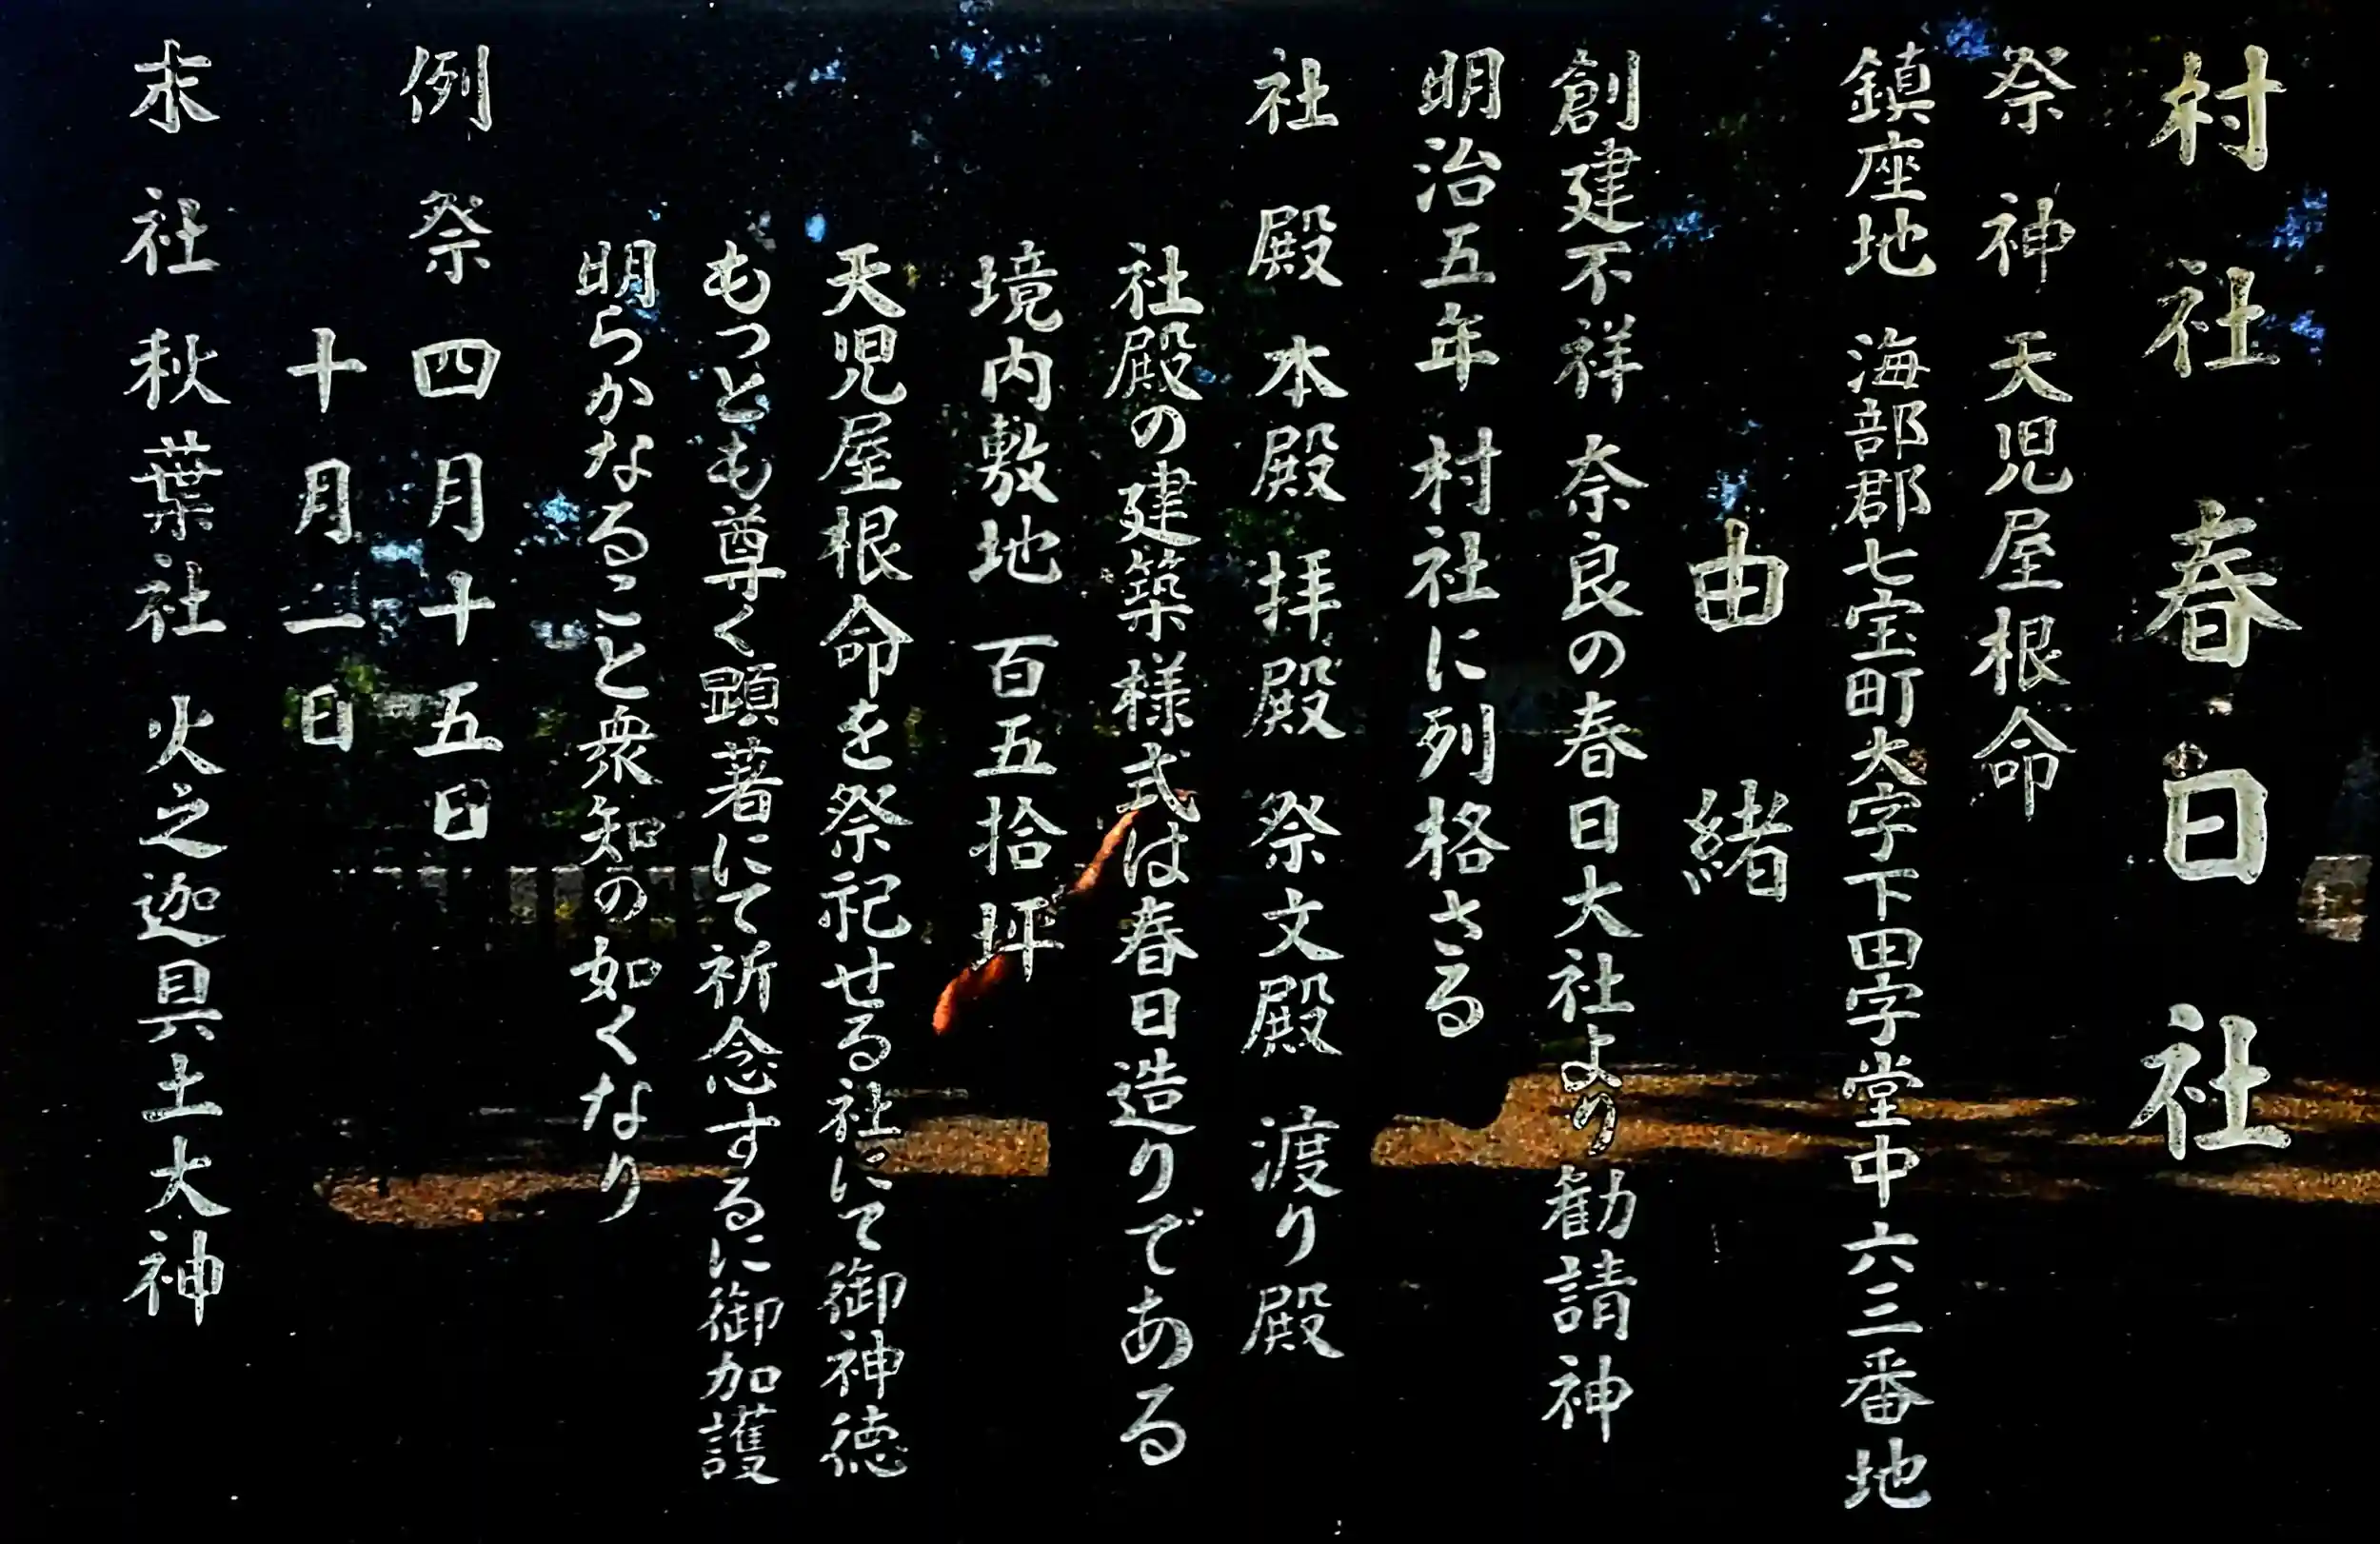 村社 春日社
祭神 天児屋根命
鎮座地 海部郡七宝町大字下田字堂中六三番地
由緒
創建不祥 奈良の春日大社より勧請神
明治五年 村社に列格さる
社殿 本殿 拝殿 祭文殿 渡り殿
社殿の建築様式は春日造りである
境内敷地 百五拾坪
天児屋根命を祭祀せる社にて御神徳
もっとも尊く顕著にて祈念するに御加護
明らかなること衆知の如くなり
例祭 四月十五日
十月二日
末社 秋葉社 火之迦具土大神